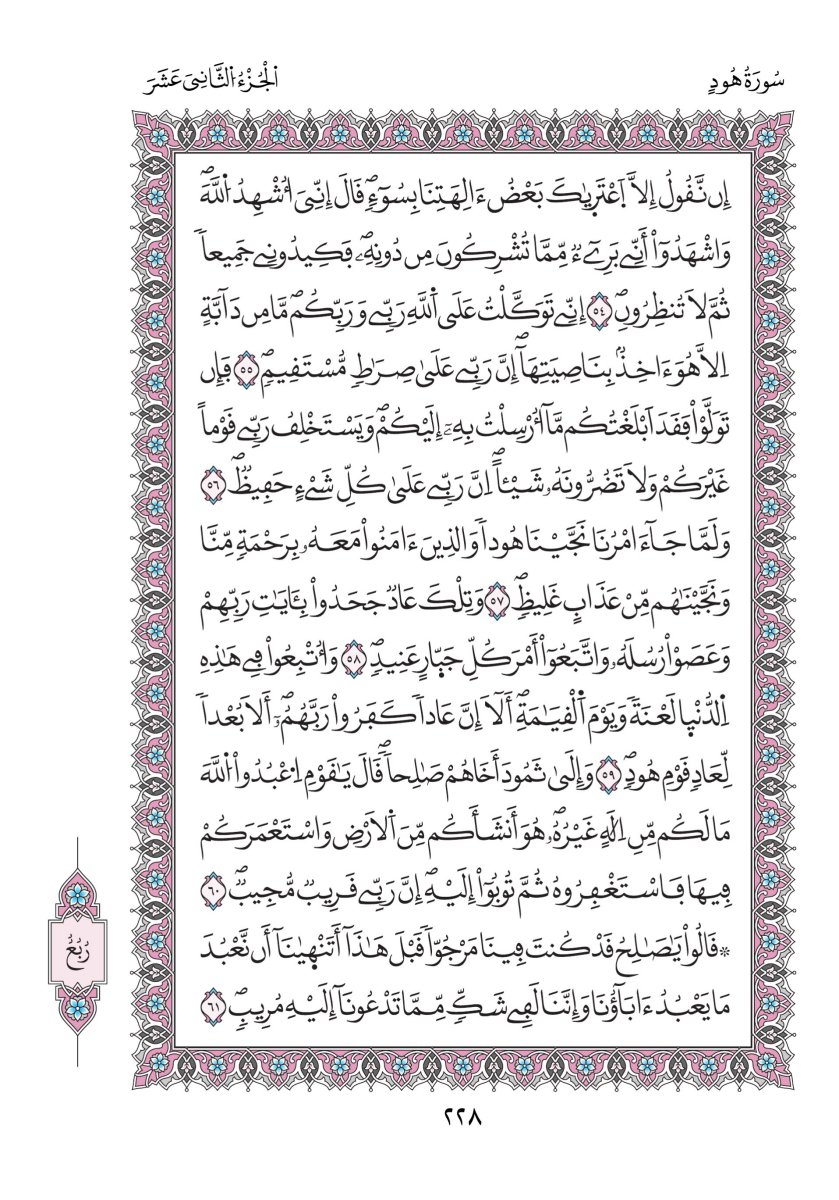 سُورَةُ هُودٍ
اَ۬لْجُزْءُ اُ۬لثَّانِےَ عَشَرَ
إِن نَّقُولُ إِلاَّ اَ۪عْتَر۪يٰكَ بَعْضُ ءَالِهَتِنَا بِسُوٓءٖۖ قَالَ إِنِّيَ أُشْهِدُ اُ۬للَّهَۖ
وَاشْهَدُوٓاْ أَنِّے بَرِےٓءٞ مِّمَّا تُشْرِكُونَ مِن دُونِهِۦۖ فَكِيدُونِے جَمِيعاٗ
ثُمَّ لاَ تُنظِرُونِۖ ٥٤ إِنِّے تَوَكَّلْتُ عَلَي اَ۬للَّهِ رَبِّے وَرَبِّكُمۖ مَّا مِن دَآبَّةٍ
اِلاَّ هُوَ ءَاخِذُۢ بِنَاصِيَتِهَآۖ إِنَّ رَبِّے عَلَيٰ صِرَٰطٖ مُّسْتَقِيمٖۖ ٥٥ فَإِن
تَوَلَّوْاْ فَقَدَ اَبْلَغْتُكُم مَّآ أُرْسِلْتُ بِهِۦٓ إِلَيْكُمْۖ وَيَسْتَخْلِفُ رَبِّے قَوْماً
غَيْرَكُمْ وَلاَ تَضُرُّونَهُۥ شَيْـٔاًۖ اِنَّ رَبِّے عَلَيٰ كُلِّ شَےْءٍ حَفِيظٞۖ ٥٦
وَلَمَّا جَآءَ امْرُنَا نَجَّيْنَا هُوداٗ وَالذِينَ ءَامَنُواْ مَعَهُۥ بِرَحْمَةٖ مِّنَّا
وَنَجَّيْنَٰهُم مِّنْ عَذَابٍ غَلِيظٖۖ ٥٧ وَتِلْكَ عَادٞ جَحَدُواْ بِـَٔايَٰتِ رَبِّهِمْ
وَعَصَوْاْ رُسُلَهُۥ وَاتَّبَعُوٓاْ أَمْرَ كُلِّ جَبّ۪ارٍ عَنِيدٖۖ ٥٨ وَأُتْبِعُواْ فِے هَٰذِهِ
اِ۬لدُّنْي۪ا لَعْنَةٗ وَيَوْمَ اَ۬لْقِيَٰمَةِۖ أَلَآ إِنَّ عَاداٗ كَفَرُواْ رَبَّهُمُۥٓۖ أَلَا بُعْداٗ
لِّعَادٖ قَوْمِ هُودٖۖ ٥٩ وَإِلَيٰ ثَمُودَ أَخَاهُمْ صَٰلِحاٗۖ قَالَ يَٰقَوْمِ اِ۟عْبُدُواْ اُ۬للَّهَ
مَا لَكُم مِّنِ اِلَٰهٍ غَيْرُهُۥۖ هُوَ أَنشَأَكُم مِّنَ اَ۬لَارْضِ وَاسْتَعْمَرَكُمْ
فِيهَا فَاسْتَغْفِرُوهُ ثُمَّ تُوبُوٓاْ إِلَيْهِۖ إِنَّ رَبِّے قَرِيبٞ مُّجِيبٞۖ ٦٠
۞ قَالُواْ يَٰصَٰلِحُ قَدْ كُنتَ فِينَا مَرْجُوّاٗ قَبْلَ هَٰذَآ أَتَنْه۪يٰنَآ أَن نَّعْبُدَ
مَا يَعْبُدُ ءَابَآؤُنَا وَإِنَّنَا لَفِے شَكّٖ مِّمَّا تَدْعُونَآ إِلَيْهِ مُرِيبٖۖ ٦١
رُبُعُ
٢٢٨